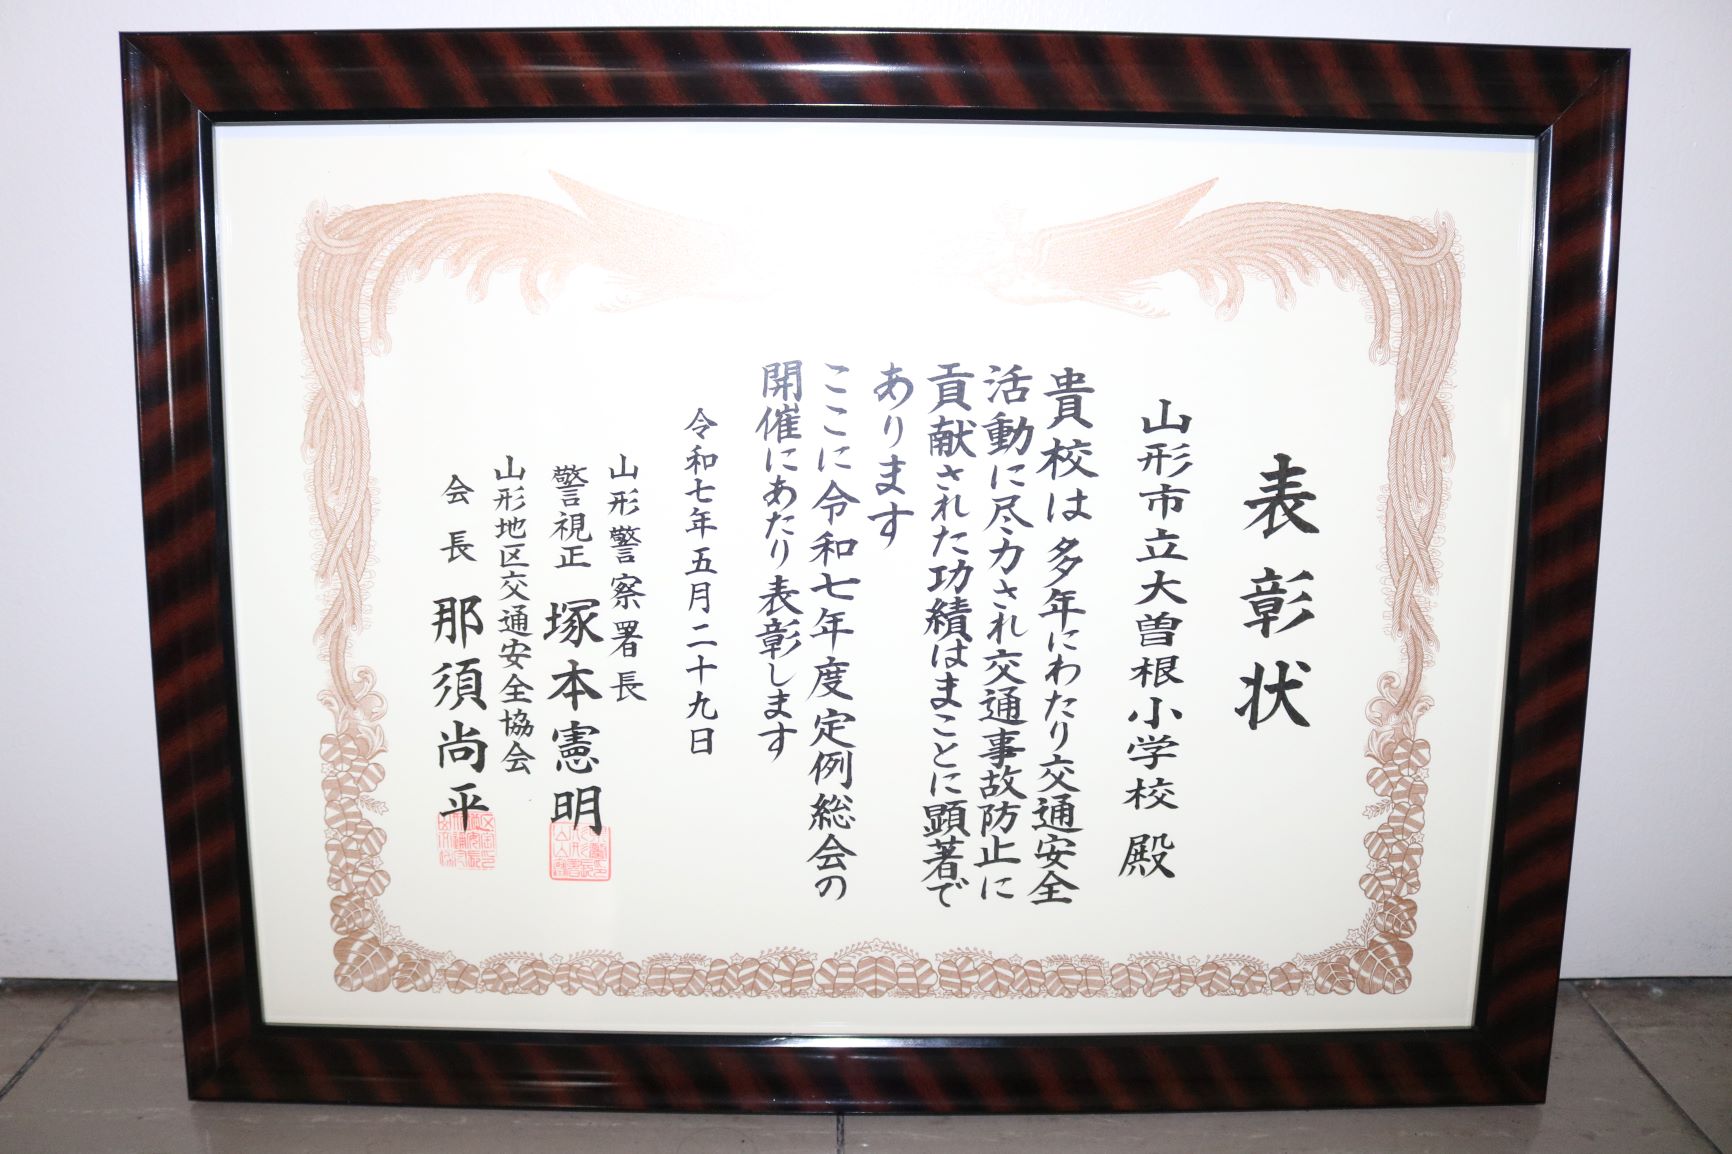 表彰状
山形市立大曽根小学校 殿
貴校は多年にわたり交通安全
活動に尽力され交通事故防止に
貢献された功績はまことに顕著で
あります
ここに令和七年度定例総会の
開催にあたり表彰します
令和七年五月二十九日
山形警察署長
警視正 塚本憲明
山形地区交通安全協会
会長 那須尚平